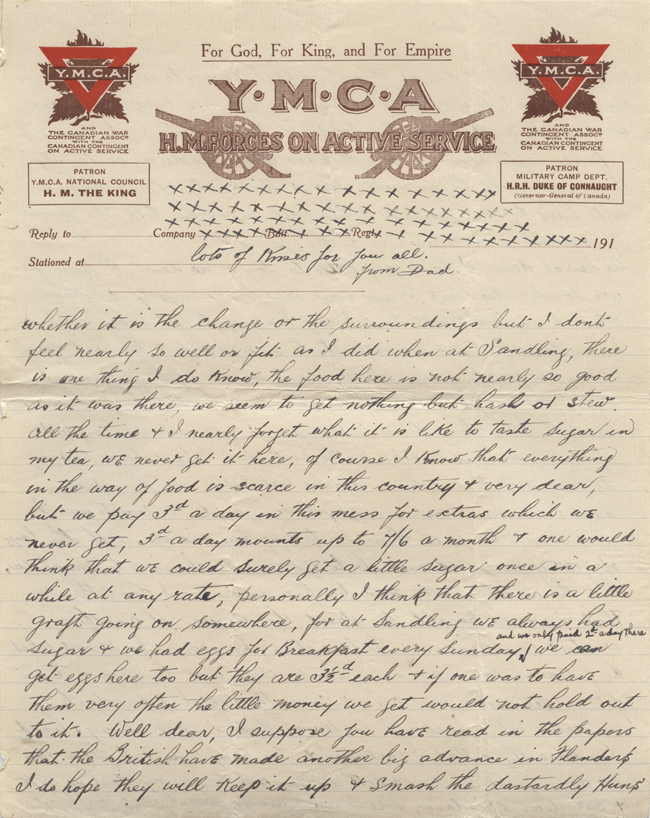 For God, For King, and For Empire
Y·M·C·A
H.M. FORCES ON ACTIVE SERVICE
Y.M.C.A.
AND
THE CANADIAN WAR
CONTINGENT ASSOCN
WITH THE
CANADIAN CONTINGENT
ON ACTIVE SERVICE
Y.M.C.A.
AND
THE CANADIAN WAR
CONTINGENT ASSOCN
WITH THE
CANADIAN CONTINGENT
ON ACTIVE SERVICE
PATRON
Y.M.C.A. NATIONAL COUNCIL
H. M. THE KING
PATRON
MILITARY CAMP DEPT.
H.R.H. DUKE OF CONNAUGHT
(Governor-General of Canada)
x x x x x x x x x x x x x x x x x x
x x x x x x x x x x x x x x x x x x
x x x x x x x x x x x x x x x x x x
Reply to Company Batt Regt x x x x x x x x x x 191
Stationed at lots of Kisses for you all.
from Dad.
whether it is the change or the surroundings but I dont
feel nearly so well or fit as I did when at Sandling, there
is one thing I do know, the food here is not nearly so good
as it was there, we seem to get nothing but hash or stew.
all the time & I nearly forget what it is like to taste sugar in
my tea, we never get it here, of course I know that everything
in the way of food is scarce in this country & very dear,
but we pay 3d a day in this mess for extras which we
never get, 3d a day mounts up to 7/6 a month & one would
think that we could surely get a little sugar once in a
while at any rate, personally I think that there is a little
graft going on somewhere, for at Sandling we always had
and we only paid 2d a day there
sugar & we had eggs for Breakfast every Sunday, we can
get eggs here too but they are 3½d each & if one was to have
them very often the little money we get would not hold out
to it. Well dear, I suppose you have read in the papers
that the British have made another big advance in Flanders
I do hope they will keep it up & smash the dastardly Huns